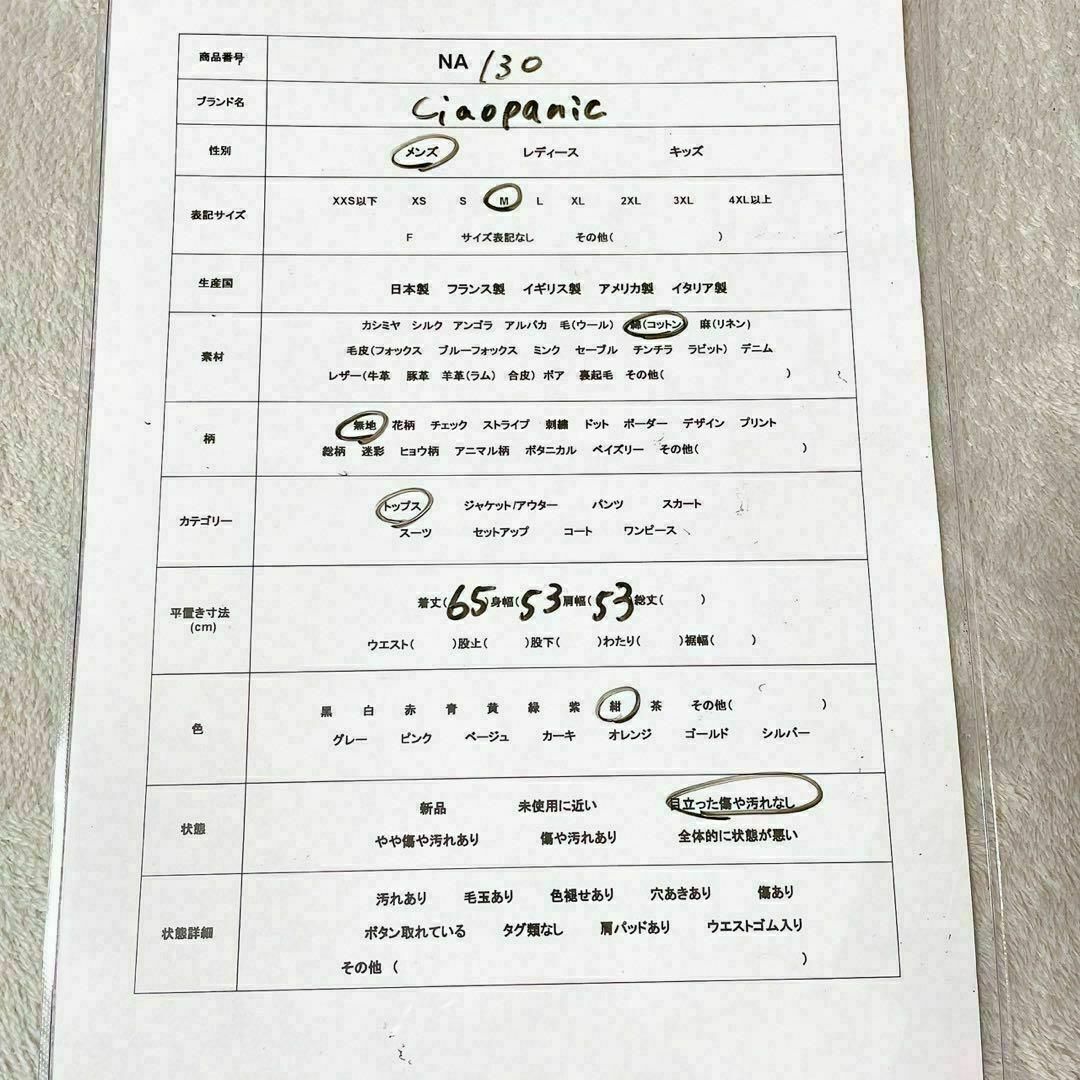 商品番号 NA 130
ブランド名 Ciaopanic
性別 メンズ レディース キッズ
表記サイズ
XXS以下 XS S M L XL 2XL 3XL 4XL以上
F サイズ表記なし その他( )
生産国 日本製 フランス製 イギリス製 アメリカ製 イタリア製
素材
カシミヤ シルク アンゴラ アルパカ 毛(ウール) 綿(コットン) 麻(リネン)
毛皮(フォックス ブルーフォックス ミンク セーブル チンチラ ラビット) デニム
レザー(牛革 豚革 羊革(ラム) 合皮) ボア 裏起毛 その他( )
柄
無地 花柄 チェック ストライプ 刺繍 ドット ボーダー デザイン プリント
総柄 迷彩 ヒョウ柄 アニマル柄 ボタニカル ペイズリー その他( )
カテゴリー
トップス ジャケット/アウター パンツ スカート
スーツ セットアップ コート ワンピース
平置き寸法
(cm)
着丈(65)身幅(53)肩幅(53)総丈( )
ウエスト( )股上( )股下( )わたり( )裾幅( )
色
黒 白 赤 青 黄 緑 紫 紺 茶 その他( )
グレー ピンク ベージュ カーキ オレンジ ゴールド シルバー
状態
新品 未使用に近い 目立った傷や汚れなし
やや傷や汚れあり 傷や汚れあり 全体的に状態が悪い
状態詳細
汚れあり 毛玉あり 色褪せあり 穴あきあり 傷あり
ボタン取れている タグ類なし 肩パッドあり ウエストゴム入り
その他 ( )